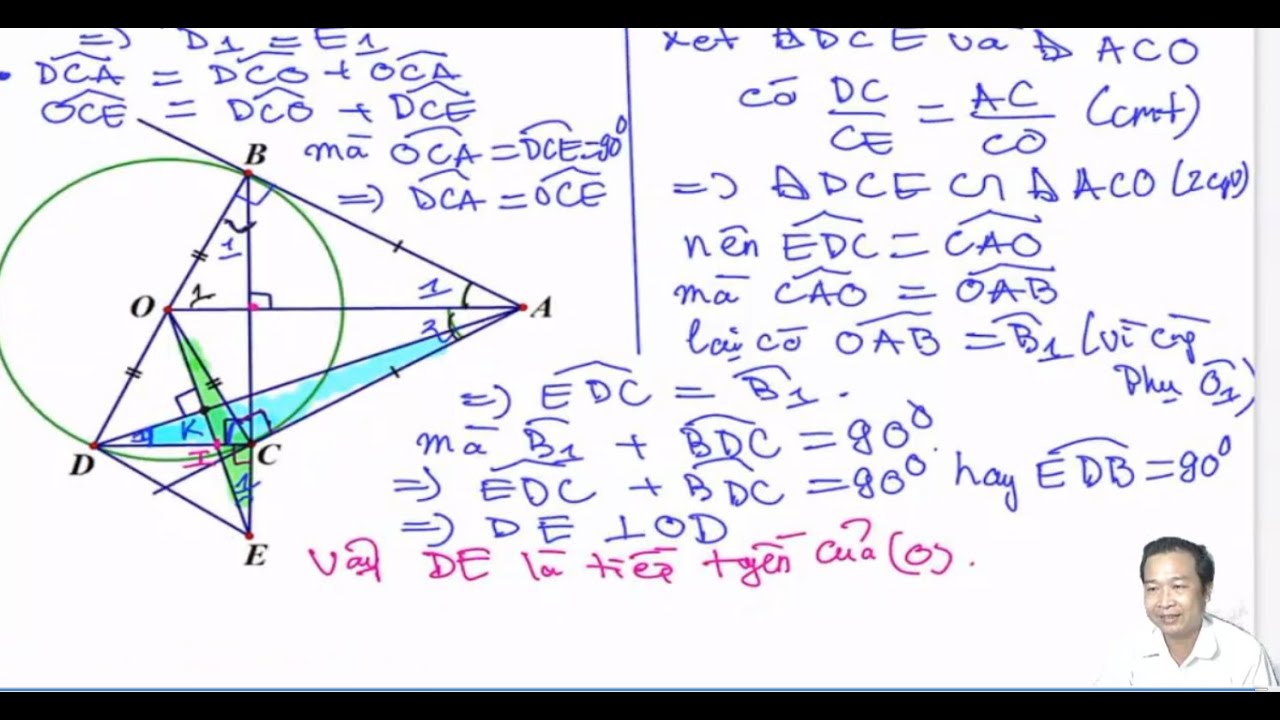 => D̂1 = Ê1
• DCA = DCO + OCA
OCE = DCO + DCE
mà OCA = DCE = 90⁰
=> DCA = OCE
B
1
O
1
1
2
A
K
1
I
C
D
1
E
xét Δ DCE và Δ ACO
có DC/CE = AC/CO (cmt)
=> Δ DCE ∽ Δ ACO (2cgv)
nên EDC = CAO
mà CAO = OAB
lại có OAB = B̂1 (vì cùng
phụ Ô1)
=> EDC = B̂1.
mà B̂1 + BDC = 90⁰.
=> EDC + BDC = 90⁰ hay EDB = 90⁰
=> DE ⊥ OD
Vậy DE là tiếp tuyến của (O).